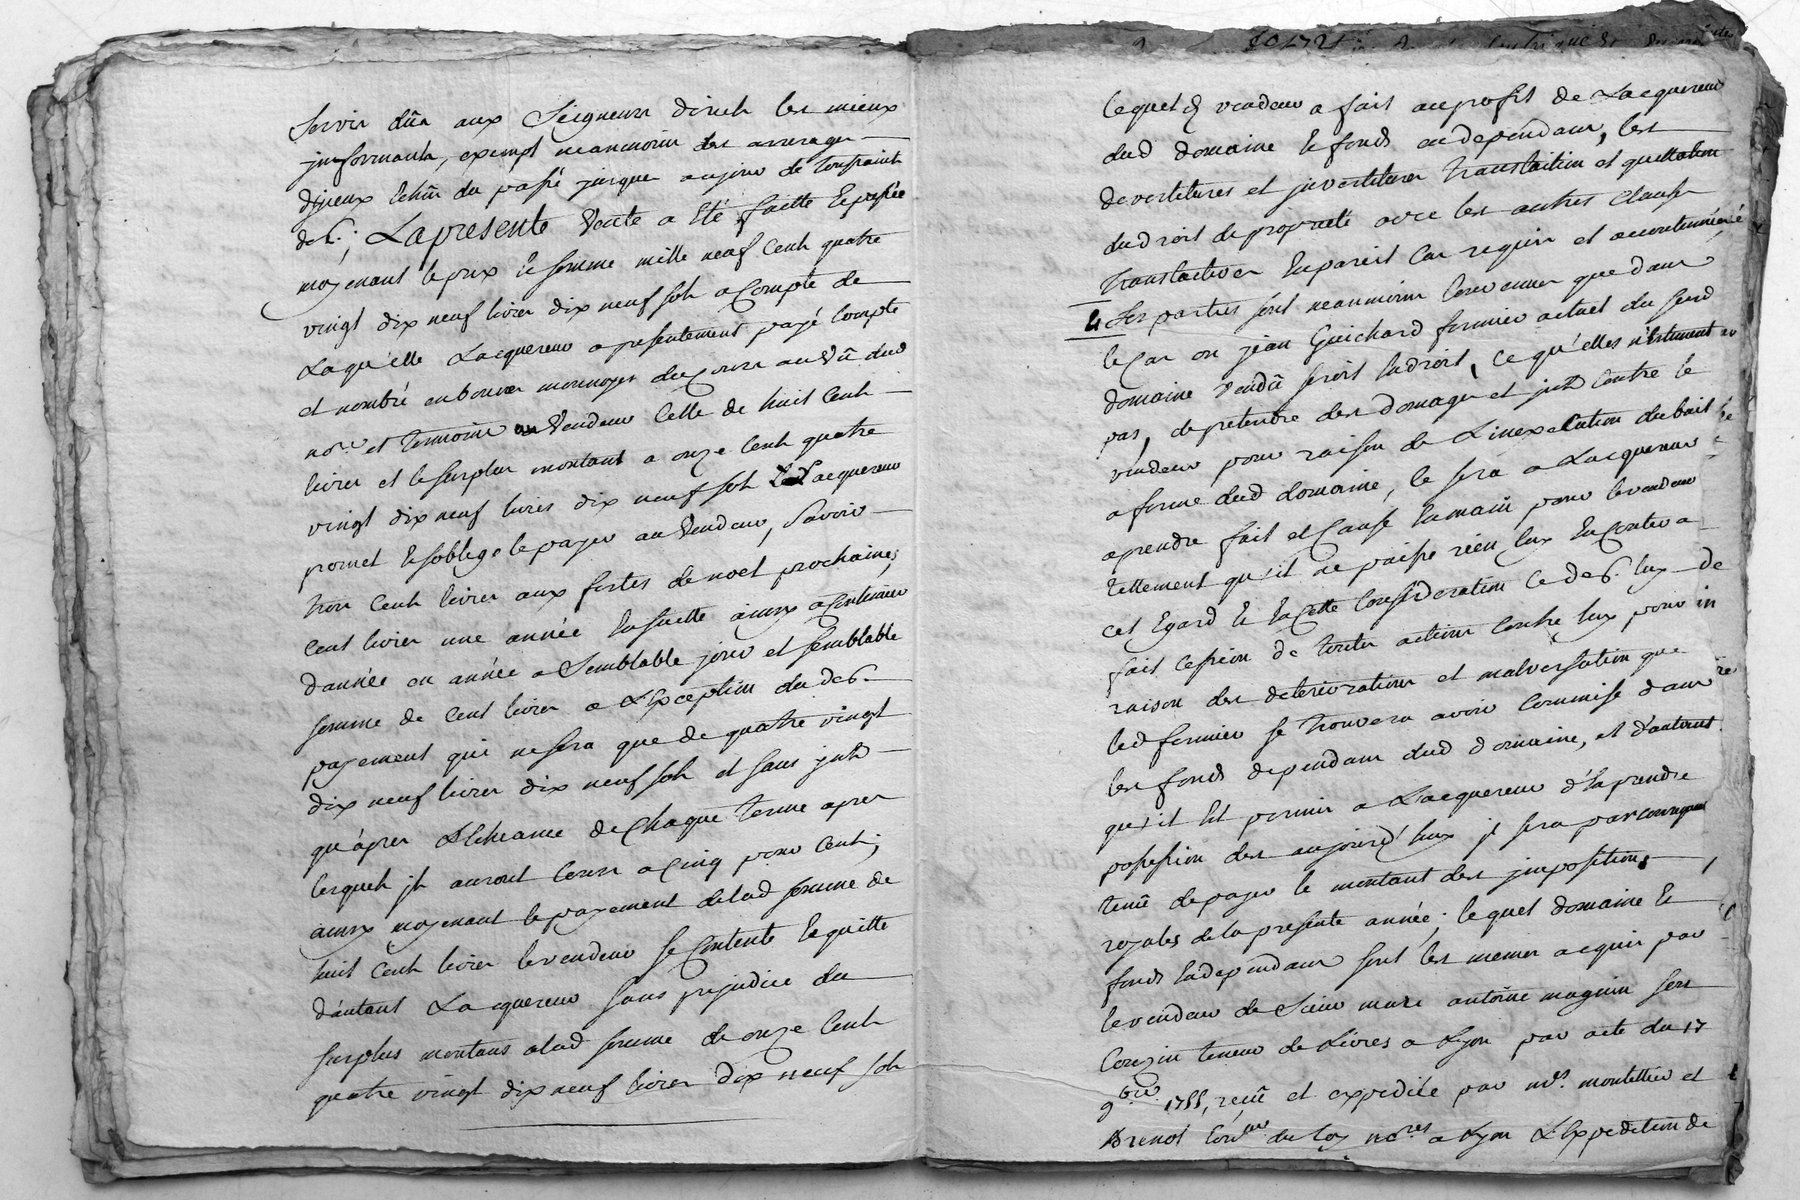 servis dûs aux Seigneurs directs les mieux
informants, exempt neanmoins des arrerages
d'yceux echûs du passé jusques au jour de toussaint
der.; La presente Vente a été faitte et passée
moyenant le prix et somme mille neuf cents quatre
vingt dix neuf livres dix neuf sols a Compte de
Laqu'elle Lacquereur a presentement payé compté
et nombré en bonnes monnoyes du cours au vû dud
nore et temoins au Vendeur Celle de huit Cents
livres et le surplus montant a onze Cents quatre
vingt dix neuf livres dix neuf sols Lacquereur
promet et soblige le payer au Vendeur, savoir
trois Cents livres aux festes de noel prochaines
Cent livres une année ensuitte ainsy a Continuer
d'année en année a Semblable jour et semblable
somme de Cent livres a L'Exception du der
payement qui ne sera que de quatre vingt
dix neuf livres dix neuf sols et sans jnts
qu'àpres L'Echeance de Chaque terme apres
lesquels jls auront Cours a Cinq pour Cent;
ainsy moyenant le payement de lad somme de
huit Cents livres le vendeur se Contente et quitte
d'autant Lacquereur sans prejudice du
surplus montant a lad somme de onze Cents
quatre vingt dix neuf livres dix neuf sols
lequel vendeur a fait au profit de Lacquereur
dud domaine et fonds en dependans, les
devestitures et jnvestitures translation et
du droit de proprieté avec les autres Clauses
translatives En pareil Cas requises et accoutumées
Les parties sont neanmoins Convenues que dans
le Cas ou jean Guichard fermier actuel du susd
domaine Vendû seroit En droit, ce qu'elles n'Estiment
pas, de pretendre des domages et jnts Contre le
vendeur pour raison de L'inexecution du bail
a ferme dud domaine, ce sera a Lacquereur
a prendre fait et Cause En main pour le vendeur
tellement qu'il ne puisse rien luy En Couter a
cet Egard Et En Cette Consideration Ce der. luy
fait Cession de toutes actions contre luy pour
raison des deteriorations et malversation que
led fermier se trouvera avoir Commise dans
les fonds dependans dud domaine, et d'autant
qu'il Est permis a Lacquereur d'En prendre
possession des aujourd'huy jl sera par
tenû de payer le montant des jmpositions
royales de la presente année; lequel domaine et
fonds En dependans sont les memes acquis par
le vendeur de Sieur marc antoine magnin sers
Corezin teneur de Livres a Lyon par acte du 17
9bre 1755, reçû et expedié par mes. montellier et
Brenot Con.rs du roy nores a Lyon L'Expedition de